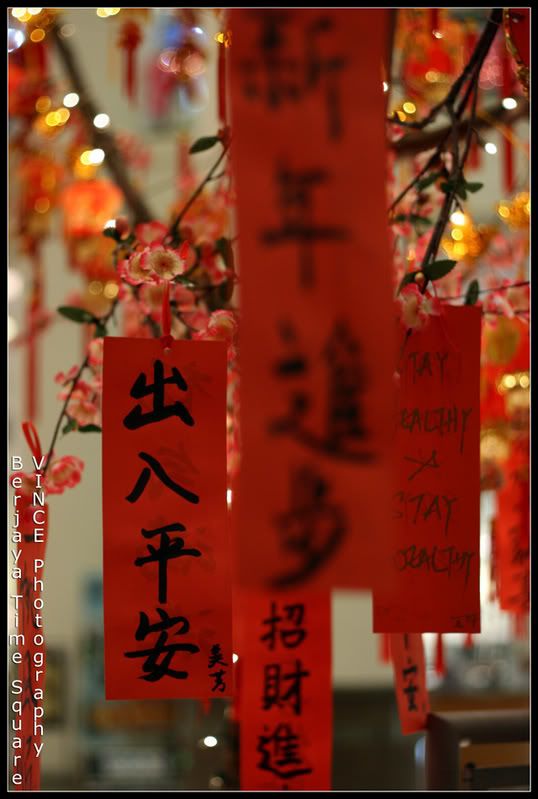 新年進步
出入平安
美芳
招財進
STAY
HEALTHY
STAY
WEALTHY
安
VINCE Photography
Berjaya Time Square